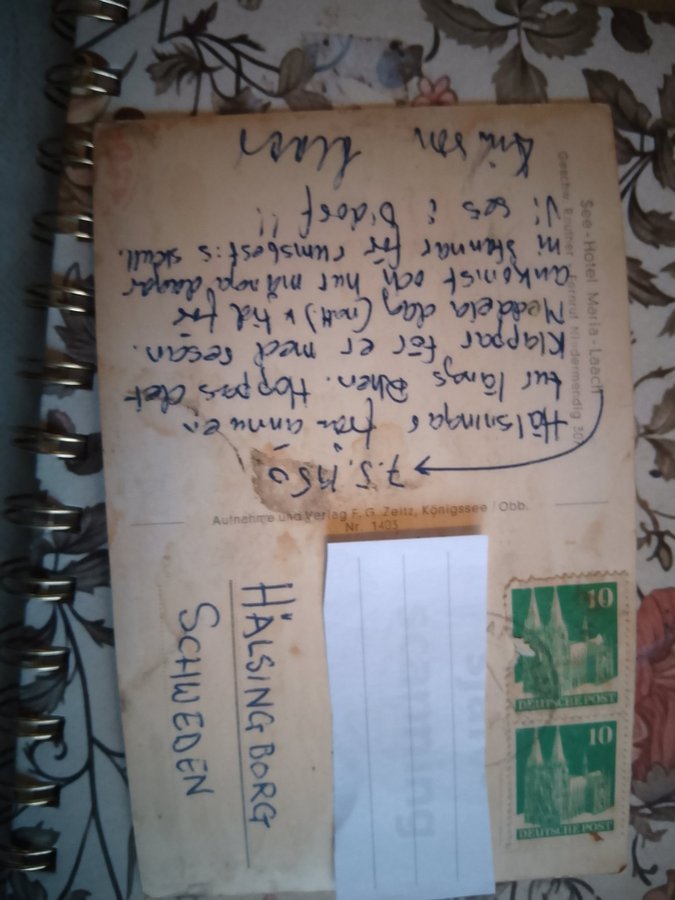 See-Hotel Maria-Laach
Geschw. Fernruf Niedermendig 307
7.5.1950
Hälsningar från ännu en
tur längs Rhen. Hoppas det
Klappar för er med resan.
Meddela dag (natt) & tid för
ankomst och hur många dagar
ni stannar för rumsbest:s skull.
Vi ses i D:dorf!!
Aufnahme und Verlag F. G. Zeitz, Königssee / Obb.
Nr. 1403
10
DEUTSCHE POST
10
DEUTSCHE POST
HÄLSINGBORG
SCHWEDEN